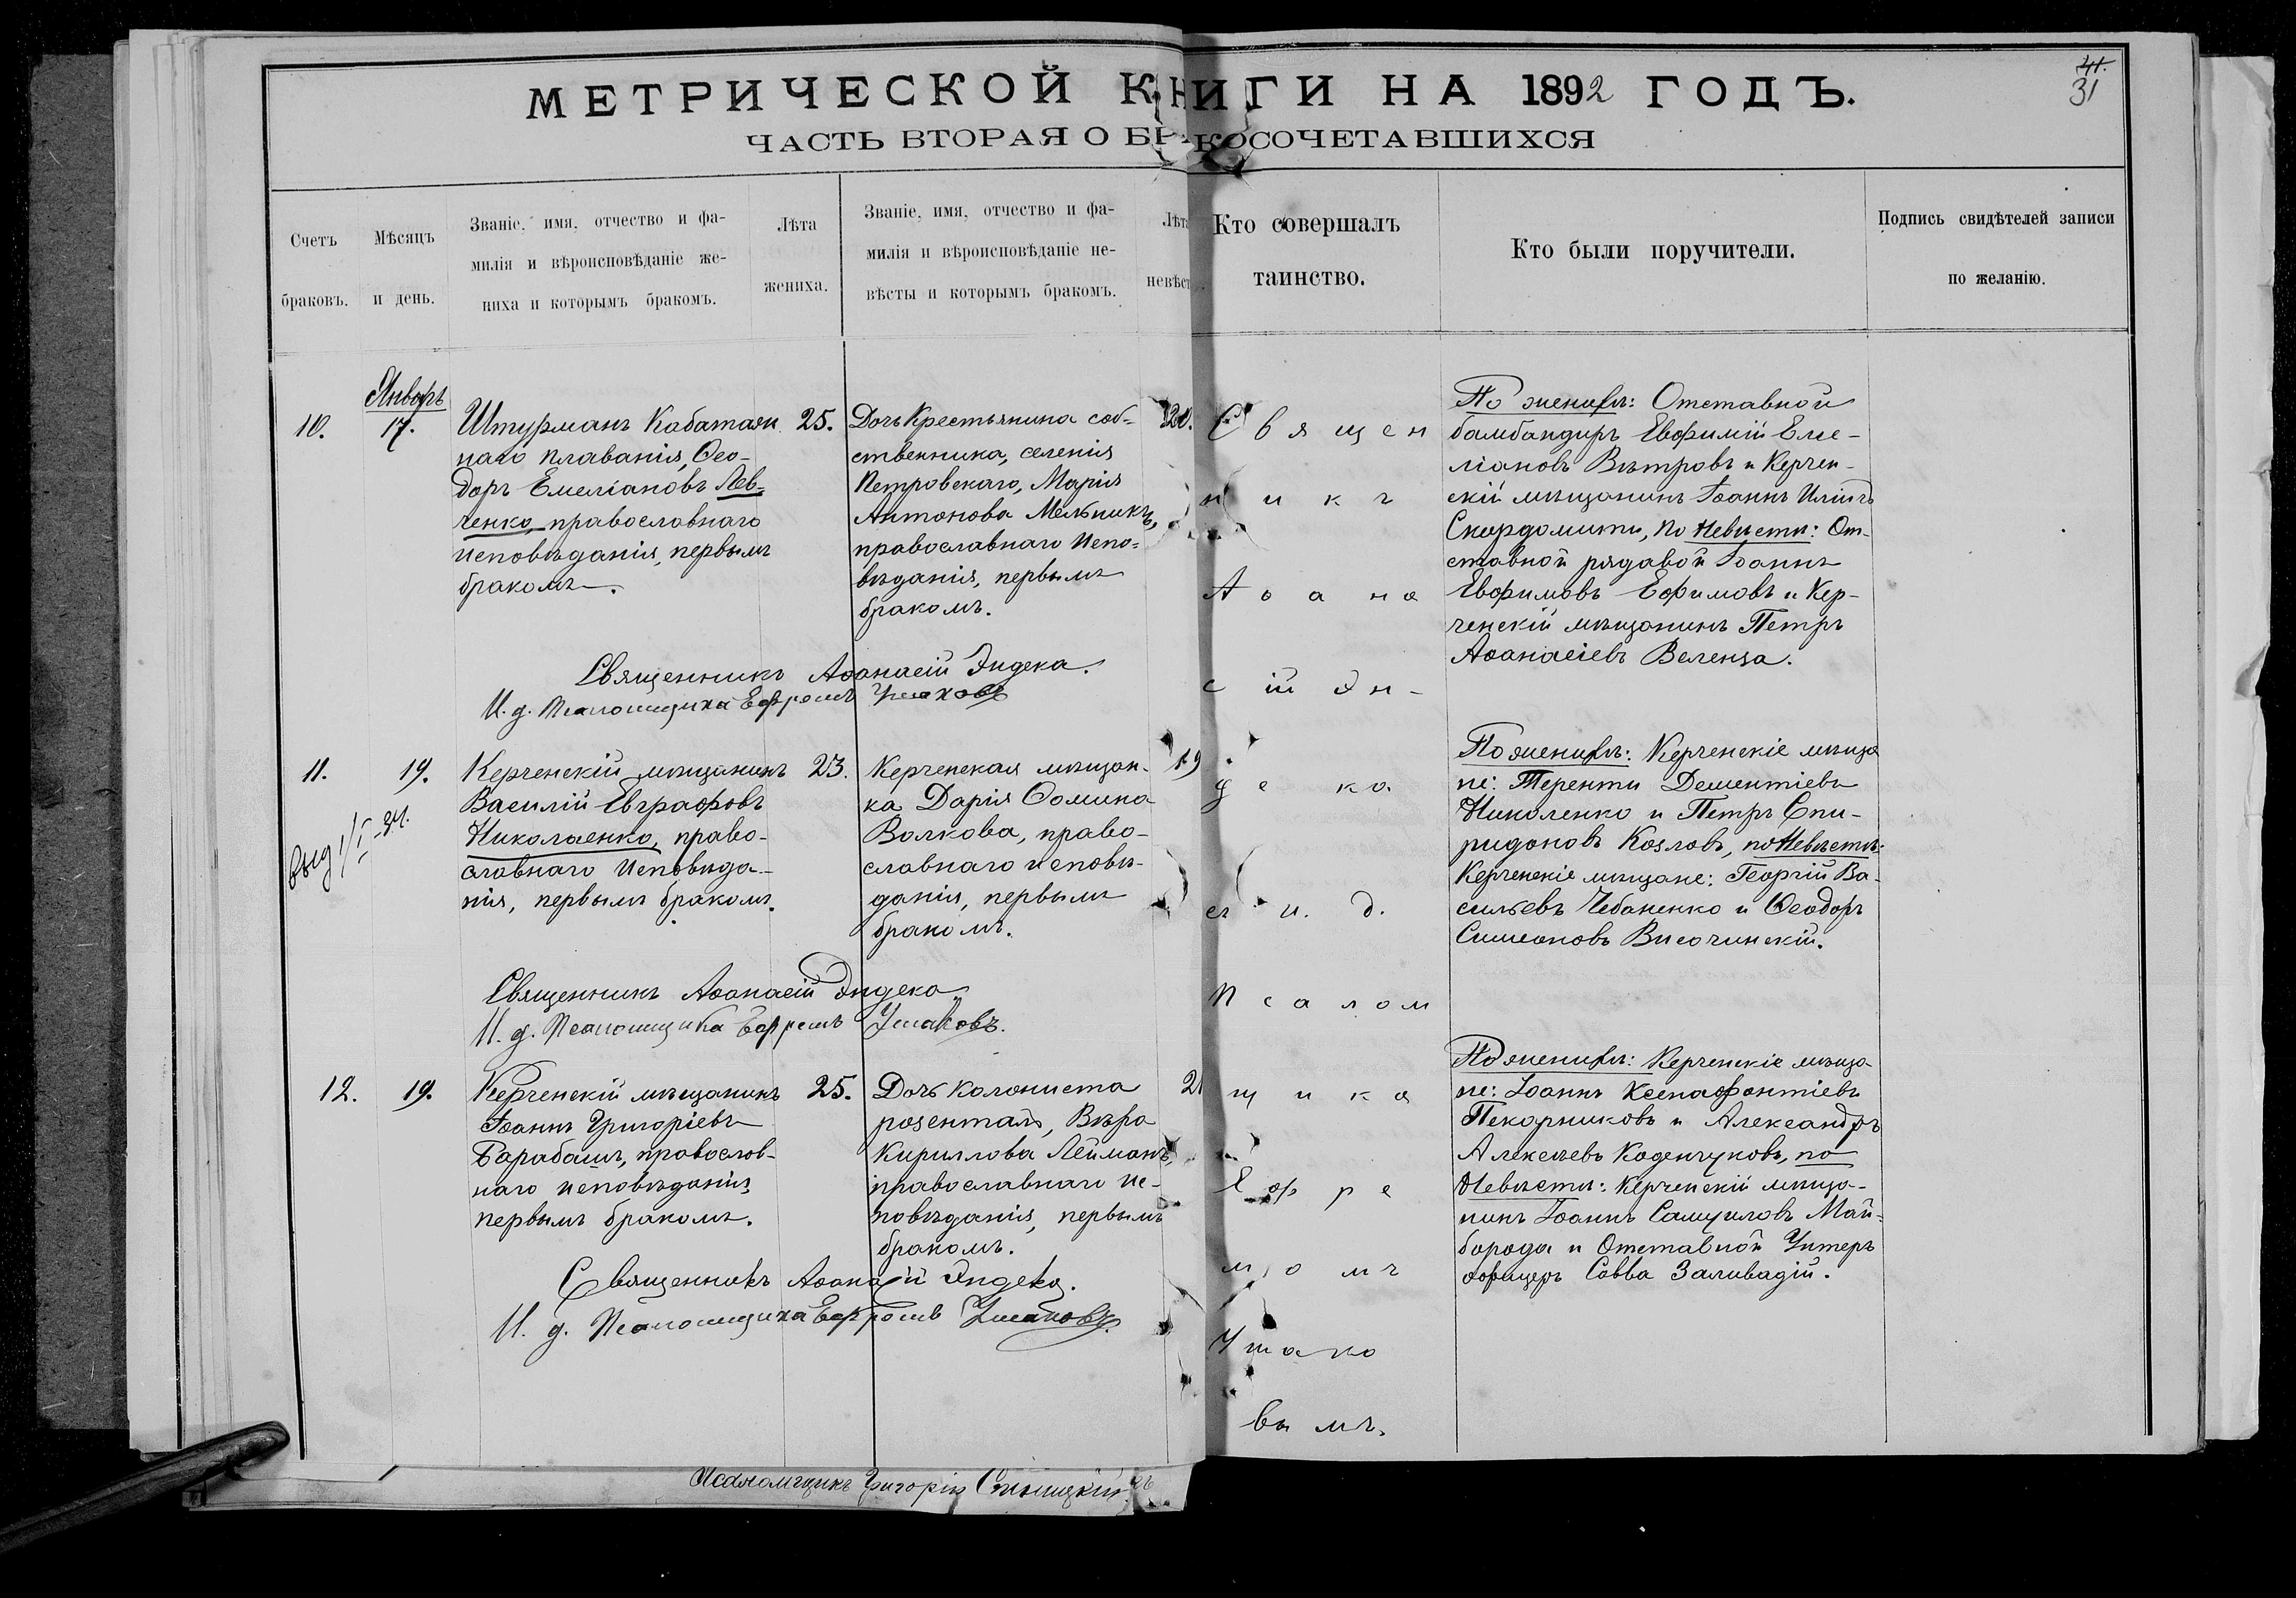 МЕТРИЧЕСКОЙ КНИГИ НА 1892 ГОДЪ.
41.
31
ЧАСТЬ ВТОРАЯ О БРАКОСОЧЕТАВШИХСЯ
Счетъ браковъ.
Мѣсяцъ и день.
Званіе, имя, отчество и фа-
милія и вѣроисповѣданіе же-
ниха и которымъ бракомъ.
Лѣта
жениха.
Званіе, имя, отчество и фа-
милія и вѣроисповѣданіе не-
вѣсты и которымъ бракомъ.
Лѣта
невѣст
Кто совершалъ
таинство.
Кто были поручители.
Подпись свидѣтелей записи
по желанію.
Январь
10.
17.
Штурманъ Кабатаж
наго плаванія, Ѳео-
доръ Емеліановъ Лев-
ченко, православнаго
исповѣданія, первымъ
бракомъ.
25.
Дочь Крестьянина соб-
ственника, селенія
Петровскаго, Марія
Антонова Мельникъ,
православнаго испо-
вѣданія, первымъ
бракомъ.
20.
По женихѣ: Отставной
бамбандиръ Евфимій Еме-
ліановъ Вѣтровъ и Керчен-
скій мѣщанинъ Іоаннъ Иліичъ
Скордомити, по Невѣсти: От-
ставной рядавой Іоаннъ
Евфимовъ Ефимовъ и Кер-
ченскій мѣщанинъ Петръ
Аѳанасіевъ Веленза.
Священникъ Аѳанасій Эндека.
И. д. Псаломщика Ефремъ Ушаковъ
11.
19.
выд
Керченскій мѣщанинъ
Василій Евграфовъ
Николаенко, право-
славнаго исповѣда-
нія, первымъ бракомъ.
23.
Керченская мѣщан-
ка Дарія Ѳомина
Волкова, право-
славнаго исповѣ-
данія, первымъ
бракомъ.
19
По женихѣ: Керченскіе мѣща
не: Терентій Дементіевъ
Николенко и Петръ Спи-
ридоновъ Козловъ, по Невѣстѣ:
Керченскіе мѣщане: Георгій Ва-
сильевъ Чебаненко и Ѳеодоръ
Симеоновъ Височинскій.
Священникъ Аѳанасій Эндека
И. д. Псаломщика Ефремъ Ушаковъ.
12.
19.
Керченскій мѣщанинъ
Іоаннъ Григоріевъ
Барабашъ, православ-
наго исповѣданія,
первымъ бракомъ.
25.
Дочь колониста
розенталь, Вѣра
Кирилова Лейманъ,
православнаго ис-
повѣданія, первымъ
бракомъ.
21
По женихѣ: Керченскіе мѣща-
не: Іоаннъ Ксенафонтіевъ
Пекарниковъ и Александръ
Алексѣевъ Каденчуковъ, по
Невѣсти: Керченскій мѣща-
нинъ Іоаннъ Самуиловъ Май-
борода и Отставной Унтеръ
офицеръ Савва Заливадій.
Священникъ Аѳанасій Эндека.
И. д. Псаломщика Ефремъ Ушаковъ.
Священ
никъ
Аѳана
сій Эн-
дека
съ и. д.
Псалом
щика
Ефре
момъ
Ушако
вымъ.
Псаломщикъ Григорій